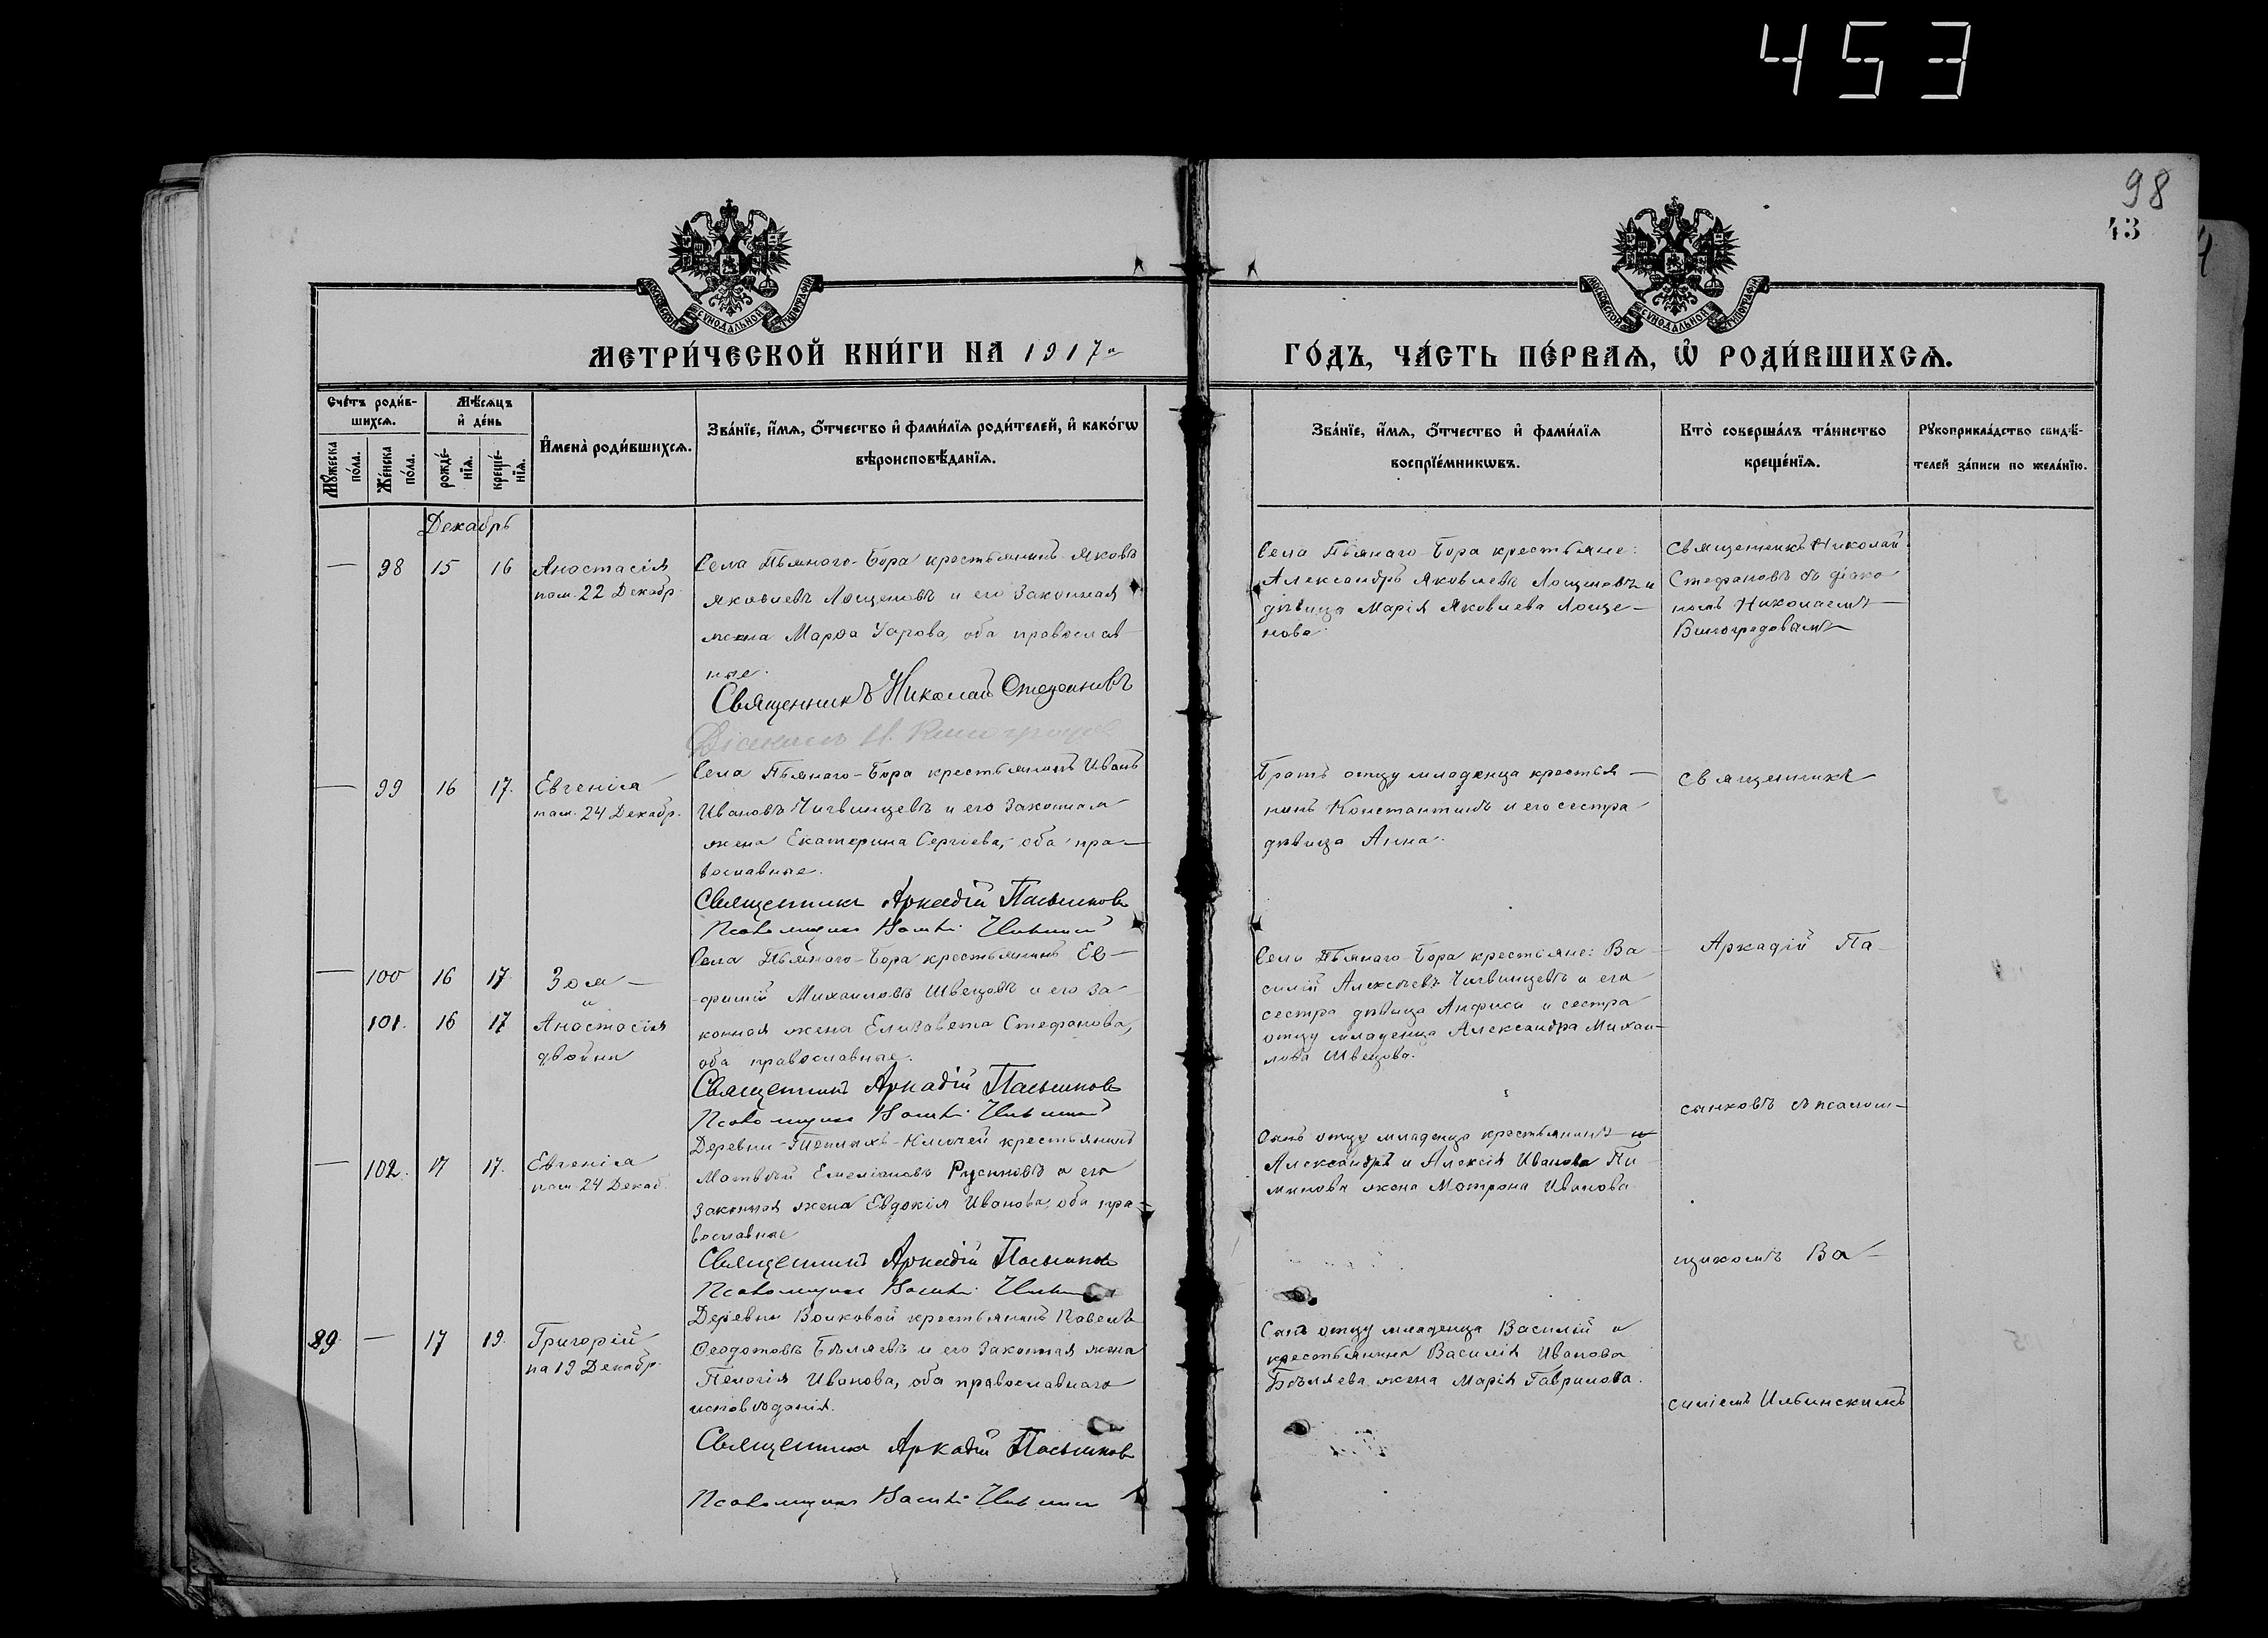 453
98
43
МОСКОВСКОЙ СѴНОДАЛЬНОЙ ТИПОГРАФІИ
МОСКОВСКОЙ СѴНОДАЛЬНОЙ ТИПОГРАФІИ
МЕТРИ́ЧЕСКОЙ КНИ́ГИ НА 1917
ГО́ДЪ, ЧА́СТЬ ПЕ́РВАѦ, Ѡ҆ РОДИ́ВШИХСѦ.
Сче́тъ роди́в-
шихсѧ.
Мѣ́сѧцъ
и҆ де́нь
Мꙋ́жеска по́ла.
Же́нска по́ла.
рожде́-
нїѧ.
креще́-
нїѧ.
И҆мена̀ роди́вшихсѧ.
Зва́нїе, и҆́мѧ, ѻ҆́тчество и҆ фами́лїѧ роди́телей, и҆ како́гѡ
вѣроисповѣ́данїѧ.
Зва́нїе, и҆́мѧ, ѻ҆́тчество и҆ фами́лїѧ
воспрїе́мникѡвъ.
Кто̀ соверша́лъ та́инство
креще́нїѧ.
Рꙋкоприкла́дство свидѣ́-
телей за́писи по жела́нїю.
Декабрь
— 98 15 16 Анастасія
пам. 22 Декабр.
Села Пьянаго-Бора крестьянинъ Яковъ
Яковлевъ Лощеновъ и его законная
жена Марѳа Уарова, оба православ
ные.
Священникъ Николай Стефановъ
Діаконъ Н. Виноградов
Села Пьянаго-Бора крестьяне:
Александръ Яковлевъ Лощеновъ и
дѣвица Марія Яковлева Лоще-
нова.
Священникъ Николай
Стефановъ съ діако
номъ Николаемъ
Виноградовымъ
— 99 16 17. Евгенія
пам. 24 Декабр.
Села Пьянаго-Бора крестьянинъ Иванъ
Ивановъ Чигвинцевъ и его законная
жена Екатерина Сергіева, оба пра-
вославные.
Священникъ Аркадій Пасынков
Псаломщикъ Васил.
Братъ отцу младенца крестья-
нинъ Константинъ и его сестра
дѣвица Анна.
священникъ
— 100 16 17. Зоя —
и
101. 16 17 Анастасія
двойни
Села Пьянаго-Бора крестьянинъ Ев-
фимій Михаиловъ Швецовъ и его за
конная жена Елизавета Стефанова,
оба православные.
Священникъ Аркадій Пасынков
Псаломщикъ Васил.
Села Пьянаго-Бора крестьяне: Ва-
силій Алексѣевъ Чигвинцевъ и его
сестра дѣвица Анфиса и сестра
отцу младенца Александра Михаи-
лова Швецова.
Аркадій Па-
— 102. 17 17. Евгенія
пам. 24 Декаб.
Деревни Теплыхъ-Ключей крестьянинъ
Матвѣй Емеліановъ Русиновъ и его
законная жена Евдокія Иванова, оба пра-
вославные
Священникъ Аркадій Пасынков
Псаломщикъ Васил.
Сынъ отцу младенца крестьянинъ
Александръ и Алексія Иванова Пи
жена Матрона Иванова.
сынковъ съ псалом-
щикомъ Ва-
89. — 17 19. Григорій
на 19 Декабр.
Деревни Волковой крестьянинъ Павелъ
Ѳеодотовъ Бѣляевъ и его законная жена
Пелагія Иванова, оба православнаго
исповѣданія.
Священникъ Аркадій Пасынков
Псаломщикъ Васил.
Сынъ отцу младенца Василій и
крестьянина Василія Иванова
Бѣляева жена Марія Гаврилова.
силіемъ Ильинскимъ